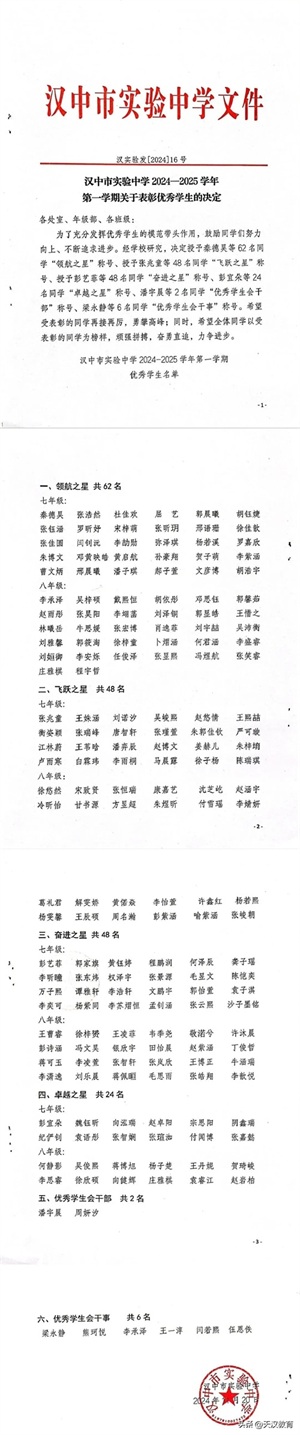 汉中市实验中学文件
汉实验发[2024]16号
汉中市实验中学2024—2025学年
第一学期关于表彰优秀学生的决定
各处室、年级部、各班级：
为了充分发挥优秀学生的模范带头作用，鼓励同学们努力
向上、不断追求进步。经学校研究，决定授予秦德昊等62名同
学“领航之星”称号、授予张兆童等48名同学“飞跃之星”称
号、授予彭艺菲等48名同学“奋进之星”称号、彭宜朵等24
名同学“卓越之星”称号、潘宇晨等2名同学“优秀学生会干
部”称号、梁永静等6名同学“优秀学生会干事”称号。希望
受表彰的同学再接再厉，勇攀高峰；同时，希望全体同学以受
表彰的同学为榜样，顽强拼搏，奋勇直追，力争进步。
汉中市实验中学2024-2025学年第一学期
优秀学生名单
-1-
一、领航之星 共62名
七年级：
秦德昊 张浩然 杜佳欢 屈艺 郭晨曦 胡钰婕
张钰涵 罗昕妤 宋梓萌 张昕玥 邢语珊 徐佳歆
张佳国 闫钊沅 李劭勋 弥泽琪 杨若溪 罗嘉欣
朱博文 邓黄映皓 黄启航 孙豪翔 贺子萌 李紫涵
曹文炳 邢晨曦 潘子琪 郝子萱 文彦博 胡浩宇
八年级：
李承泽 吴梓硕 戴熙恒 胡依彤 邓思钰 郭馨茹
赵雨彤 张昊阳 刘泽铜 郭昱皓 王倩之
林曦岳 牛思媛 张宏博 肖逸菲 吴沛衡
刘雅馨 郭筱海 徐梓童 卜熠涵 何君涵 李盛睿
刘姮御 李安烁 任俊泽 张昱熙 冯煜航 张笑睿
庄雅棋 程宇哲
二、飞跃之星 共48名
七年级：
张兆童 王姝涵 刘诺汐 吴峻熙 赵悠倩 王熙喆
衡姿颖 张瑞峰 唐智轩 张瑾萱 朱郭佳钦 严可璇
江林蔚 王苇晗 潘弈辰 赵博文 姜赫儿 朱梓琦
卢雨寒 白霖玮 李雨桐 马晨露 徐子杨 陈瑞琪
八年级：
徐悠然 宋致贤 张恒瑞 康嘉艺 沈芝屹 赵涵宇
冷昕怡 甘书源 方昱超 朱煜昕 付雪瑶 李婧妍
-2-
葛礼君 解雯娇 黄偌焱 李怡萱 许鑫红 杨若熙
杨雯馨 王辰硕 周名瀚 彭紫涵 喻紫涵 张峻朝
三、奋进之星 共48名
七年级：
彭艺菲 郭家旗 黄钰婷 程鹏润 何泽辰 龚子瑶
李昕曈 张东炜 权泽宇 张景源 毛昱文 陈恺奕
万子熙 谭雅轩 李浩轩 文鹏宇 郭怡萱 袁子淇
李奕可 杨紫同 李苏熠恒 孟钊涵 张云熙 沙子墨铭
八年级：
王曹睿 徐梓赟 王凌菲 韦李尧 敬湉兮 许沐晨
彭诗涵 冯文昊 银欣宇 田怡晨 赵紫涵 丁俊哲
蒋可玉 李凌萱 张智轩 张岚欣 王博正 牛涵瑞
李潇逸 刘乐晨 蒋佩颐 毛思雨 张皓翔 李歆悦
四、卓越之星 共24名
七年级：
彭宜朵 魏钰昕 向泓瑞 赵卓阳 宗思阳 阴鑫瑞
纪伊钊 袁语彤 张智娴 张瑄汕 付闻博 张嘉懿
八年级：
何静影 吴俊熙 蒋博旭 杨子楚 王丹妮 贺琦峻
李思睿 徐欣硕 向健辉 庄雅棋 袁睿江 赵若柏
五、优秀学生会干部 共2名
潘宇晨 周妍汐
-3-
六、优秀学生会干事 共6名
梁永静 熊珂悦 李承泽 王一淳 闫若熙 伍思佚
汉中市实验中学
头条@天汉教育